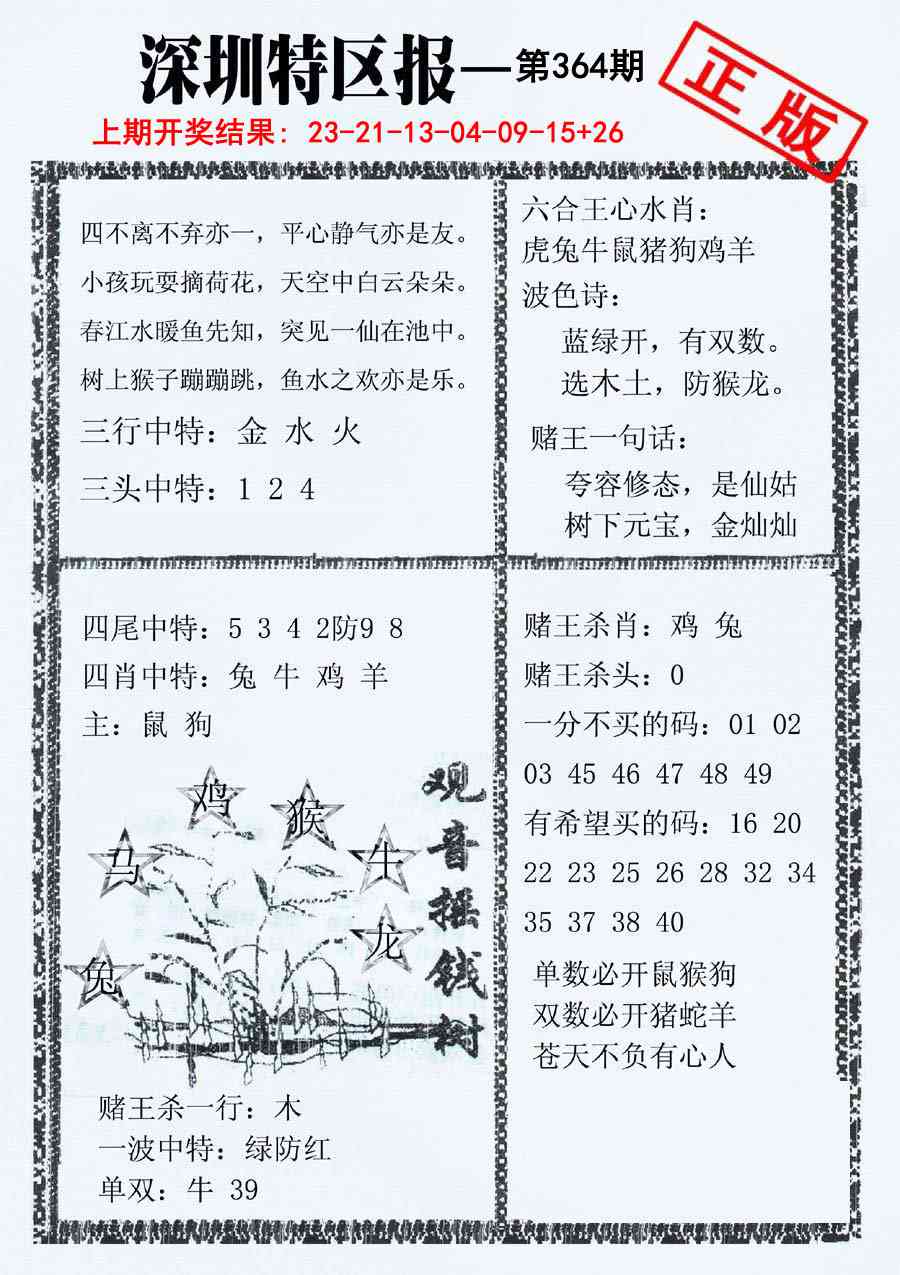 深圳特区报—第364期
正版
上期开奖结果: 23-21-13-04-09-15+26
四不离不弃亦一，平心静气亦是友。
小孩玩耍摘荷花，天空中白云朵朵。
春江水暖鱼先知，突见一仙在池中。
树上猴子蹦蹦跳，鱼水之欢亦是乐。
三行中特：金 水 火
三头中特：1 2 4
六合王心水肖：
虎兔牛鼠猪狗鸡羊
波色诗：
蓝绿开，有双数。
选木土，防猴龙。
赌王一句话：
夸容修态，是仙姑
树下元宝，金灿灿
四尾中特：5 3 4 2防9 8
四肖中特：兔 牛 鸡 羊
主：鼠 狗
鸡
猴
马
牛
龙
兔
观音摇钱树
赌王杀一行：木
一波中特：绿防红
单双：牛 39
赌王杀肖：鸡 兔
赌王杀头：0
一分不买的码：01 02
03 45 46 47 48 49
有希望买的码：16 20
22 23 25 26 28 32 34
35 37 38 40
单数必开鼠猴狗
双数必开猪蛇羊
苍天不负有心人